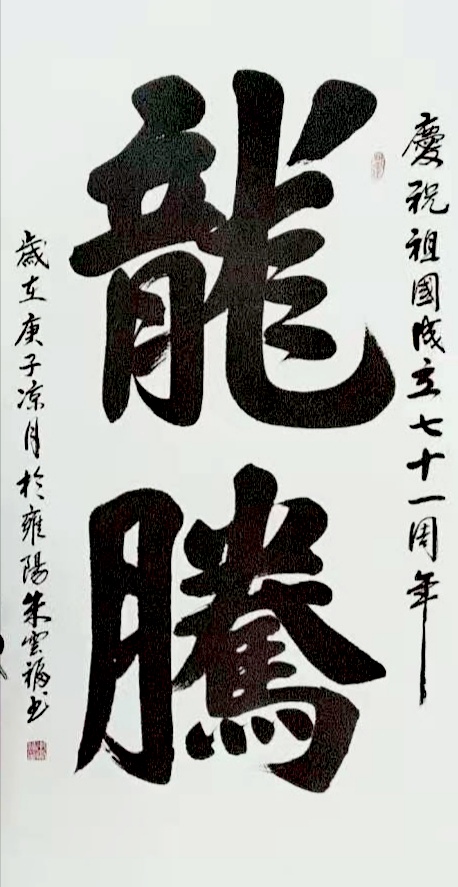 慶祝祖國成立七十一周年
龍騰
歲在庚子涼月於雍陽朱雲福書